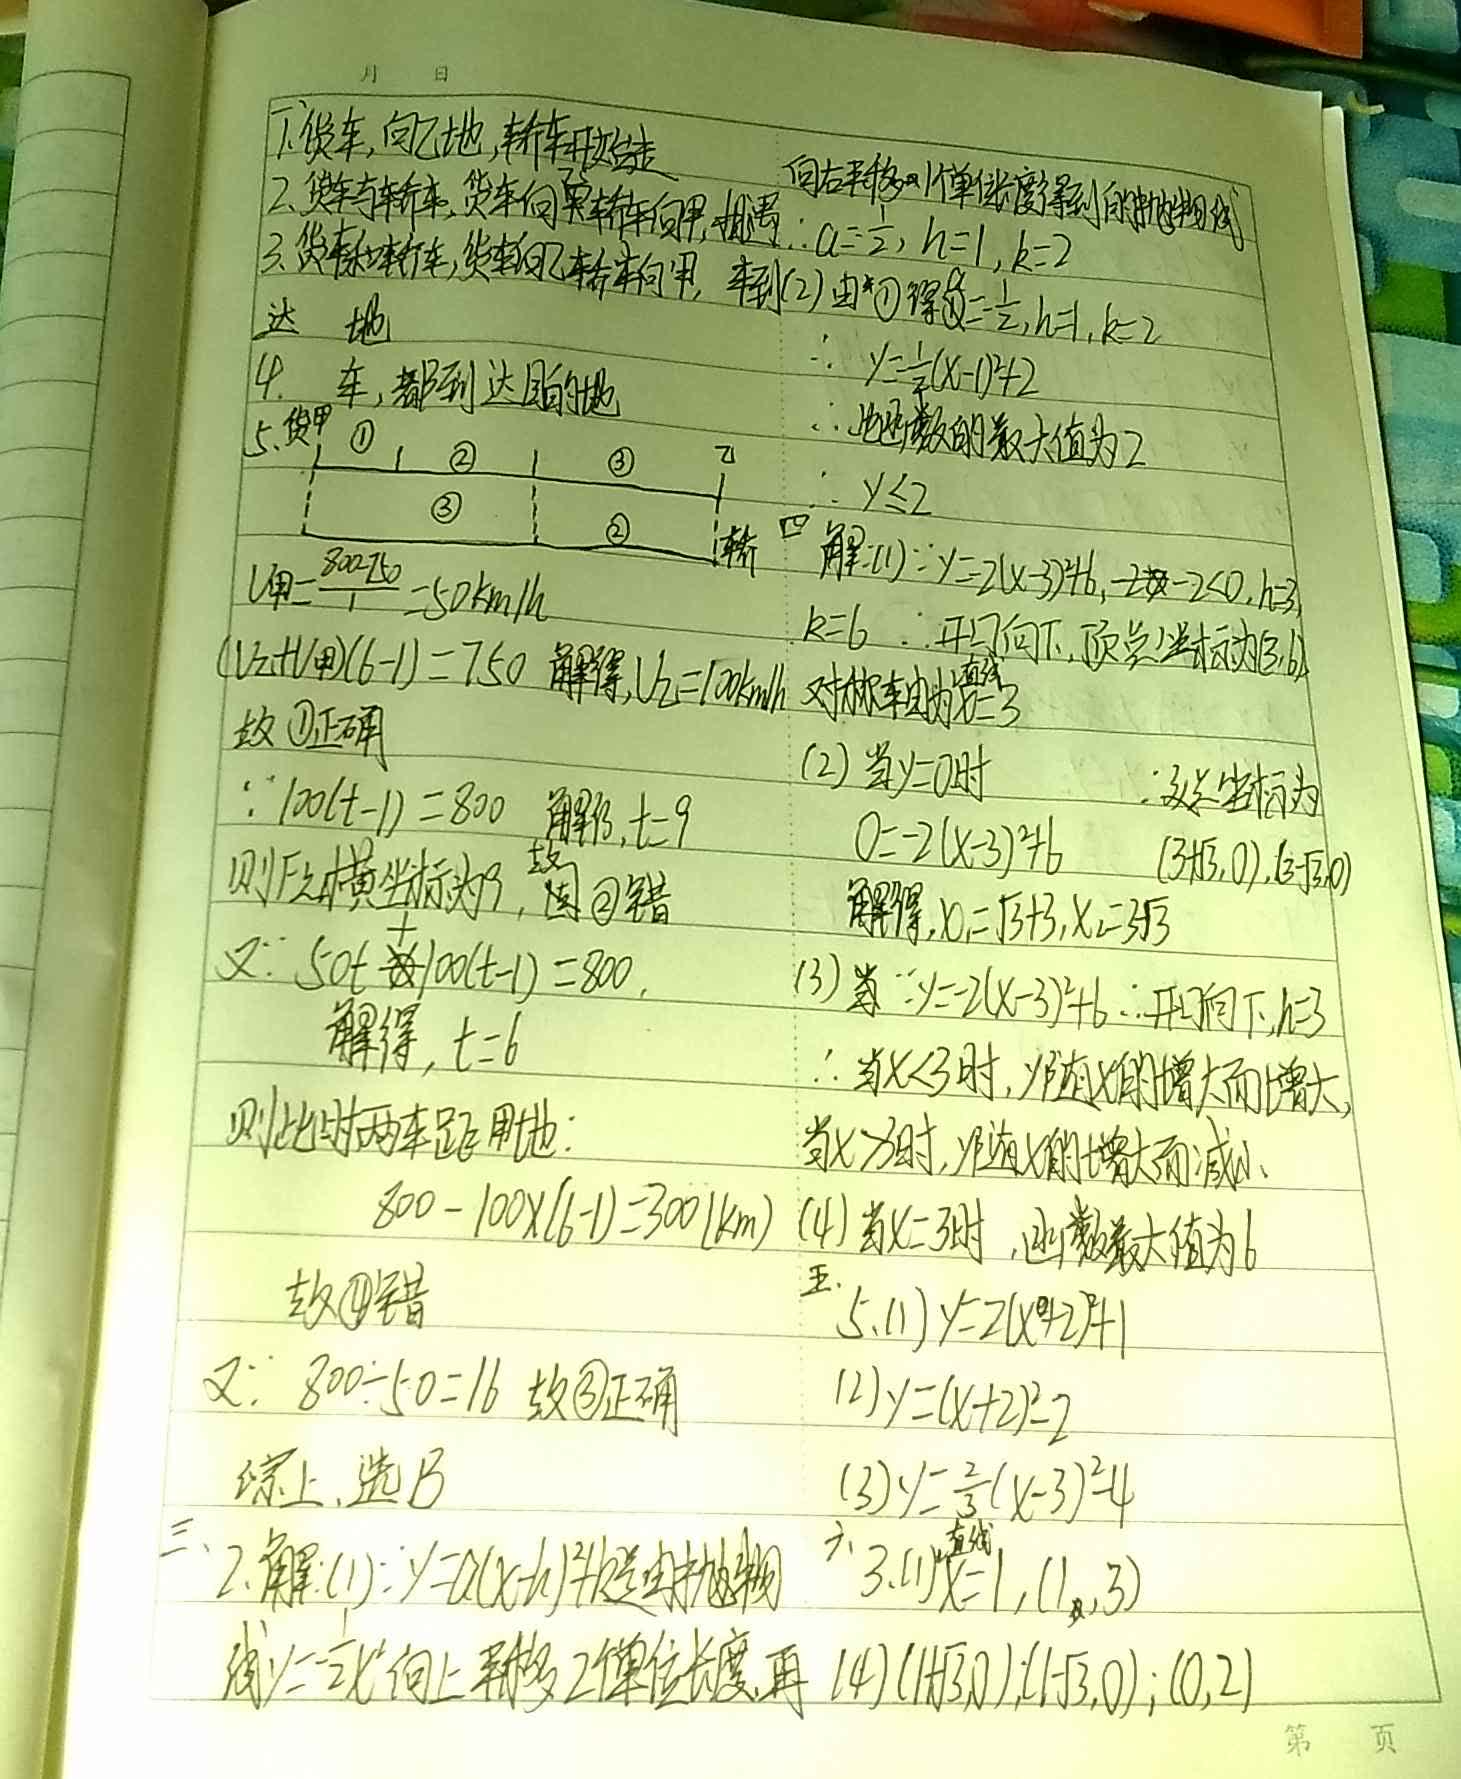 月 日
1.货车,向乙地,轿车开始走
2.货车与轿车,货车向乙轿车向甲,相遇
3.货车和轿车,货车向乙轿车向甲, 车到
达 地
4. 车,都到达目的地
5.货甲 ① ② ③ 乙
③ ② 轿
V甲=(800-750)/1=50km/h
(V乙+V甲)(6-1)=750 解得,V乙=100km/h
故①正确
∵100(t-1)=800 解得,t=9
则F点横坐标为9,故②错
又∵50t+100(t-1)=800,
解得,t=6
则此时两车距甲地:
800-100×(6-1)=300(km)
故④错
又∵800÷50=16 故③正确
综上,选B
三、2.解:(1)∵y=a(x-h)²+k是由抛物
线y=-1/2x²向上平移2个单位长度,再
向右平移1个单位长度得到的抛物线
∴a=-1/2,h=1,k=2
(2)由①得a=-1/2,h=1,k=2
∴y=-1/2(x-1)²+2
∴此函数的最大值为2
∴y≤2
四 解:(1)∵y=-2(x-3)²+6,-2<0,h=3,
k=6 ∴开口向下,顶点坐标为(3,6),
对称轴为直线x=3
(2)当y=0时
0=-2(x-3)²+6
解得,x₁=√3+3,x₂=3-√3
∴交点坐标为
(3+√3,0),(3-√3,0)
(3)∵y=-2(x-3)²+6∴开口向下,h=3
∴当x<3时,y随x的增大而增大,
当x>3时,y随x的增大而减小、
(4)当x=3时,函数最大值为6
五.
5.(1)y=2(x+2)²+1
(2)y=(x+2)²-2
(3)y=2/3(x-3)²-4
六、3.(1)直线x=1,(1,3)
(4)(1+√3,0);(1-√3,0);(0,2)
第 页